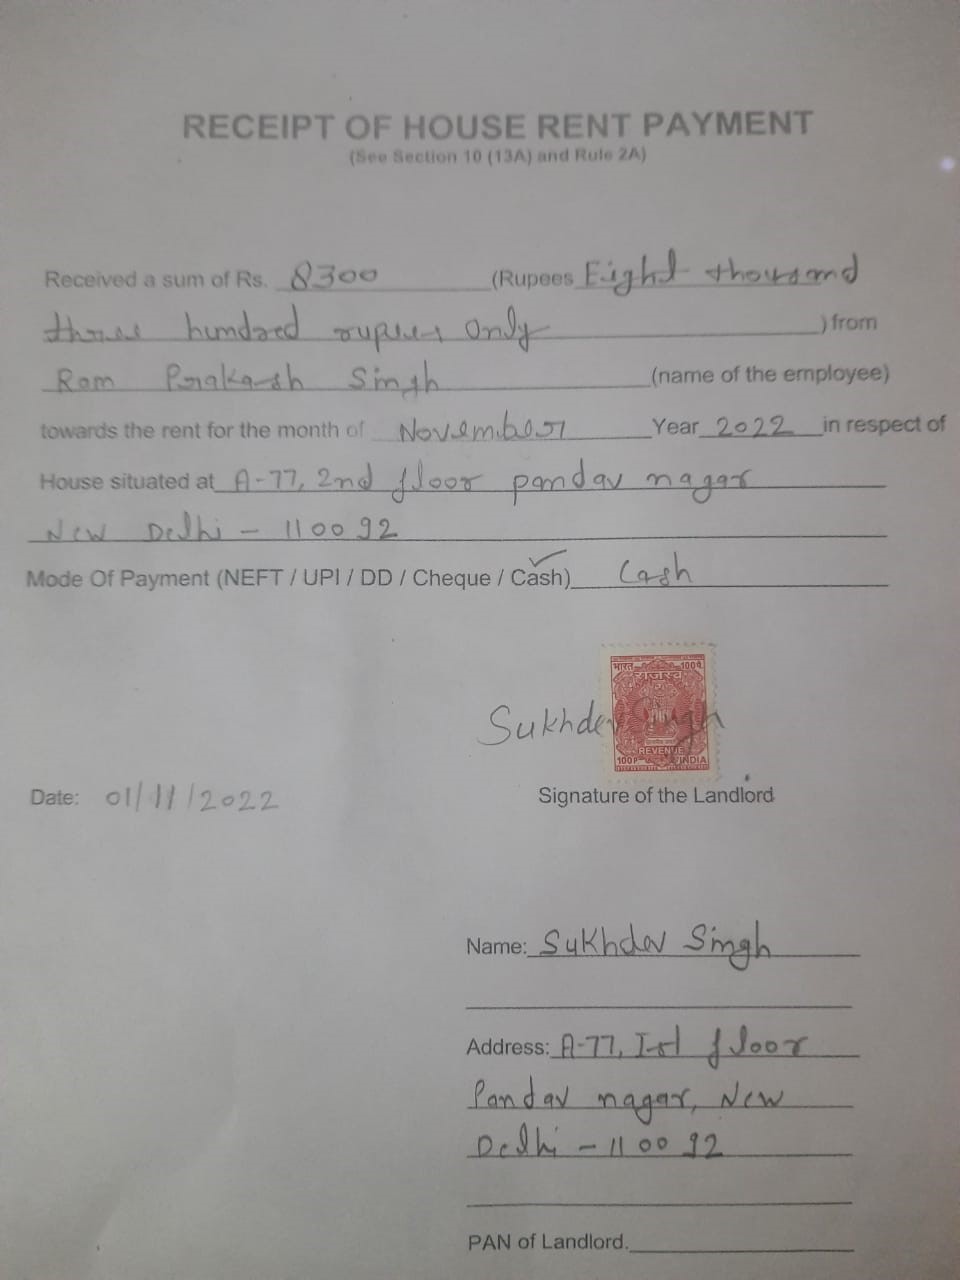 RECEIPT OF HOUSE RENT PAYMENT
(See Section 10 (13A) and Rule 2A)
Received a sum of Rs. 8300 (Rupees Eight thousand
three hundred rupees only ) from
Ram Prakash Singh (name of the employee)
towards the rent for the month of November Year 2022 in respect of
House situated at A-77, 2nd floor pandav nagar
New Delhi - 110092
Mode Of Payment (NEFT / UPI / DD / Cheque / Cash) Cash
भारत 100प.
राजस्व
Sukhdev Singh
REVENUE
100P INDIA
Date: 01/11/2022 Signature of the Landlord
Name: Sukhdev Singh
Address: A-77, Ist floor
Pandav nagar, New
Delhi - 110092
PAN of Landlord.